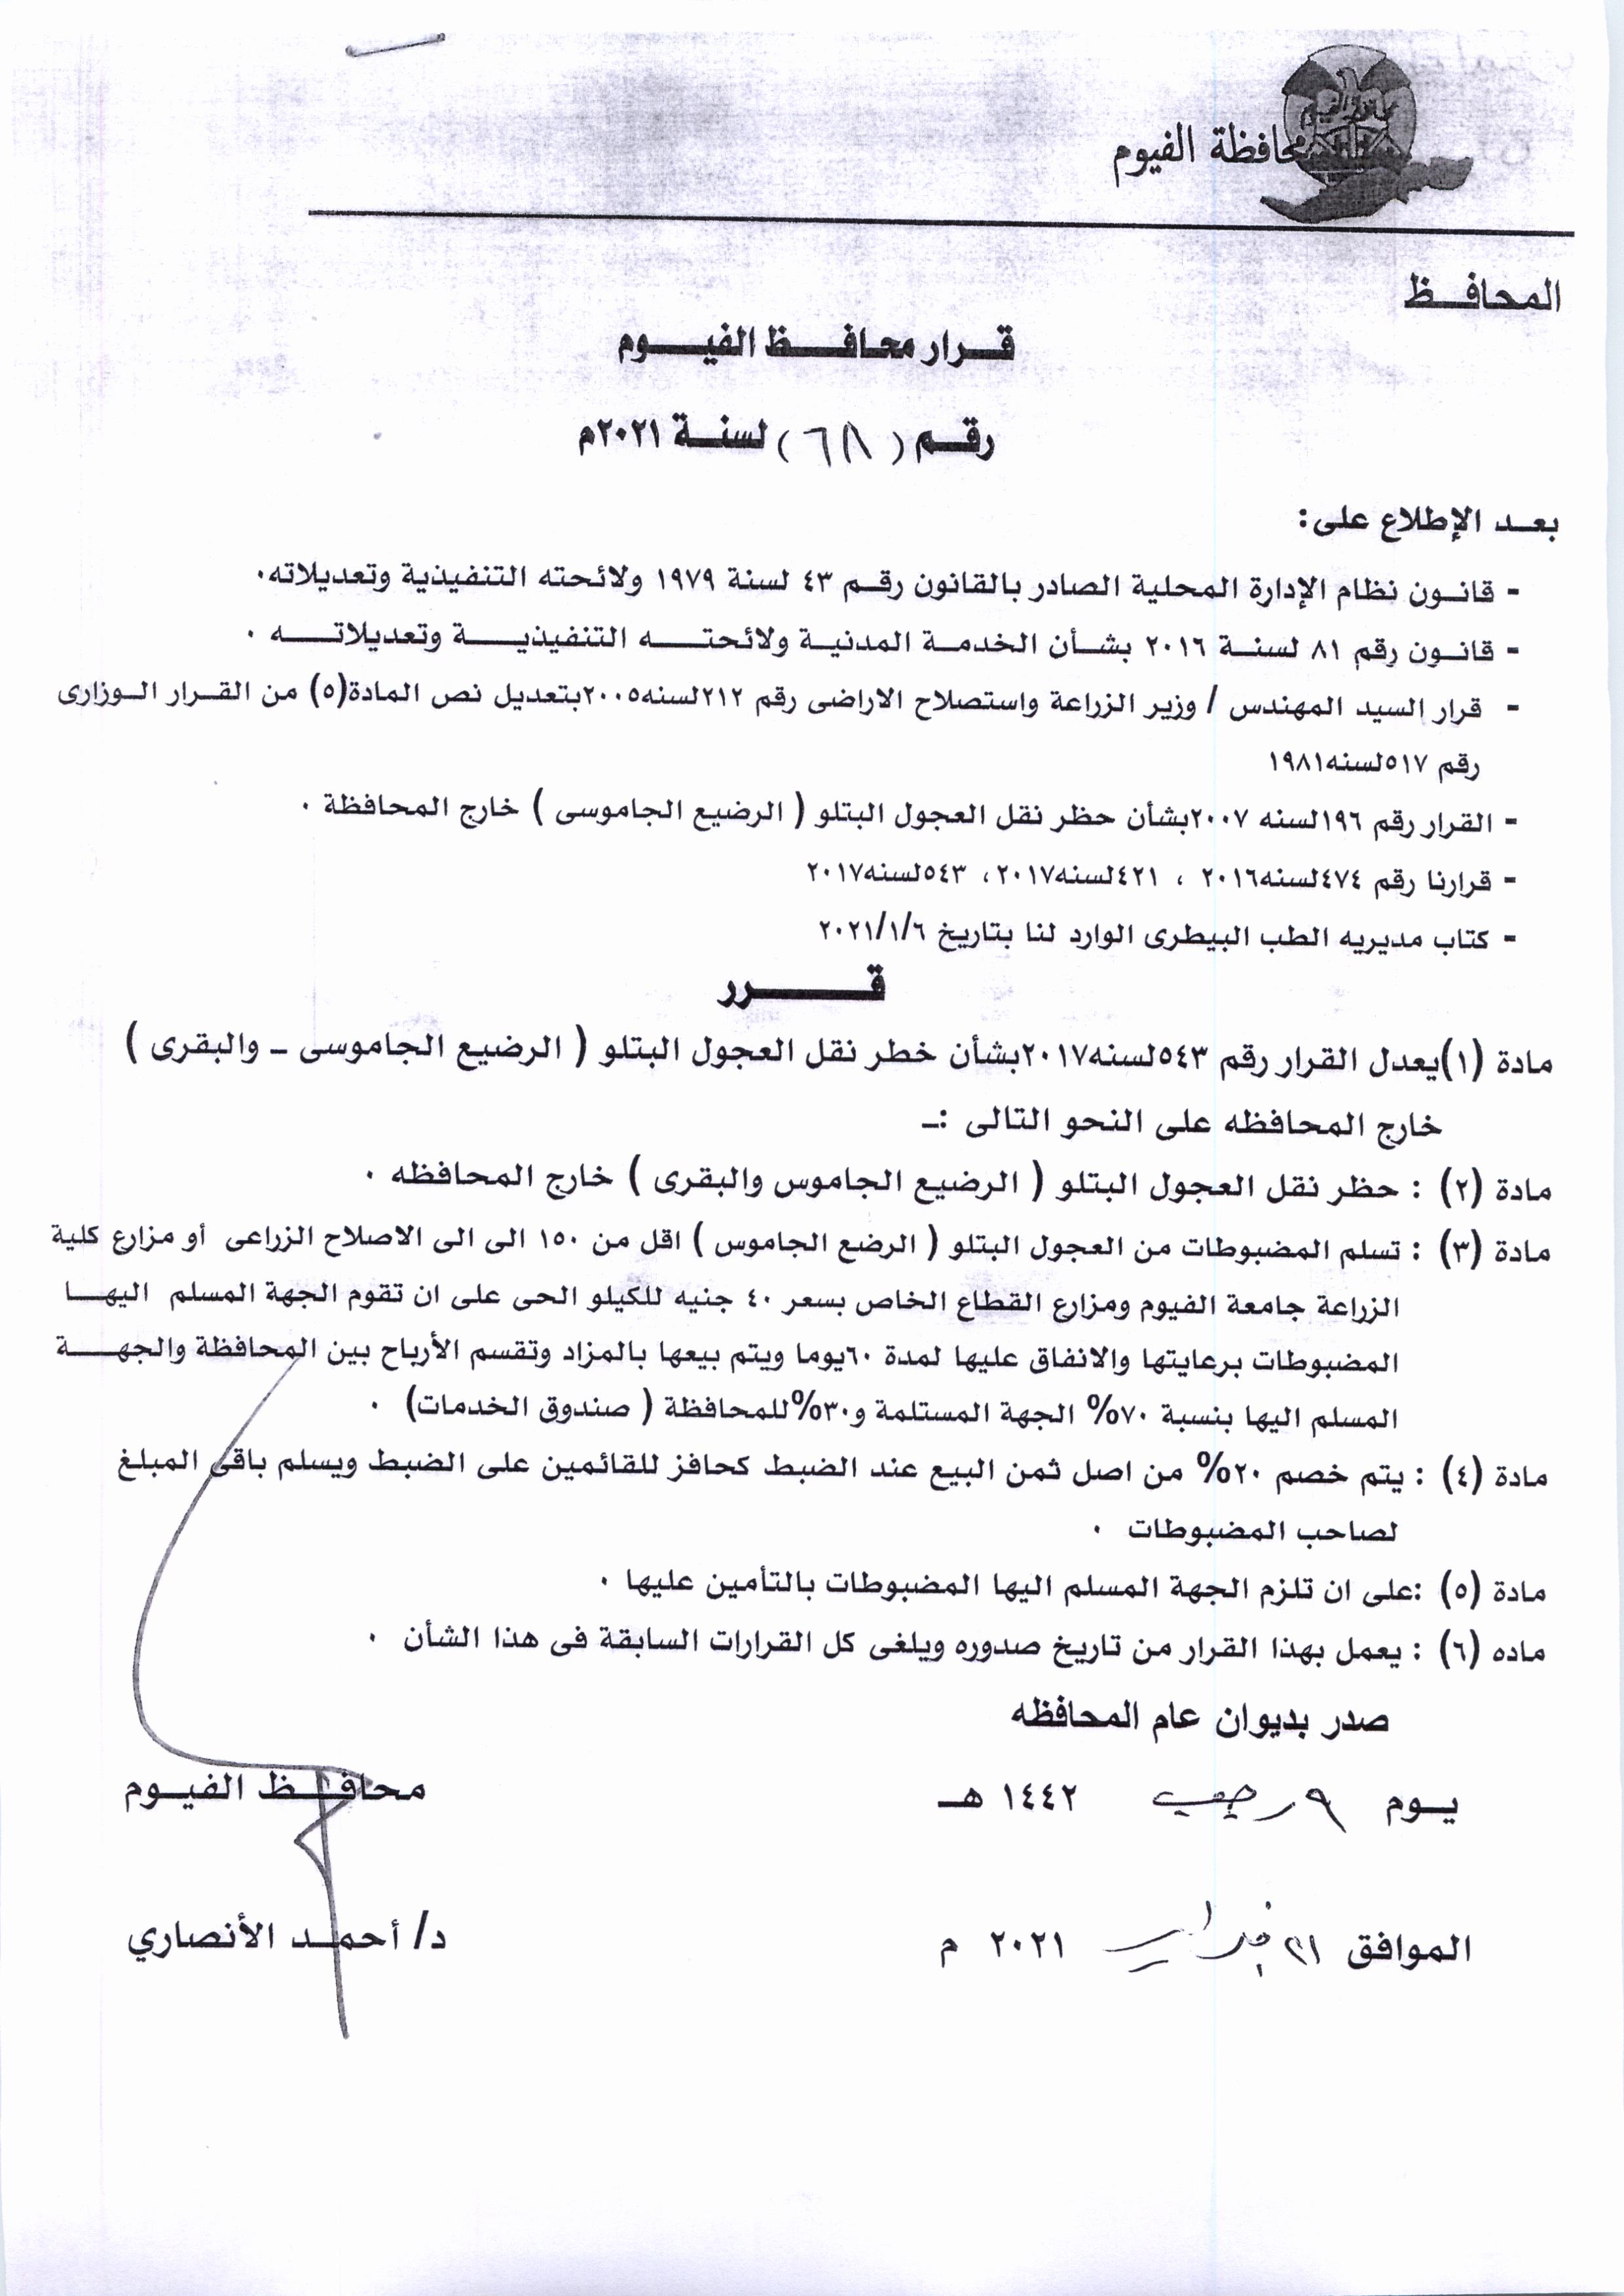 محافظة الفيوم
المحافظ
قرار محافظ الفيوم
رقم (٦٨) لسنة ٢٠٢١م
بعد الإطلاع على:
- قانون نظام الإدارة المحلية الصادر بالقانون رقم ٤٣ لسنة ١٩٧٩ ولائحته التنفيذية وتعديلاته.
- قانون رقم ٨١ لسنة ٢٠١٦ بشأن الخدمة المدنية ولائحته التنفيذية وتعديلاته .
- قرار السيد المهندس / وزير الزراعة واستصلاح الاراضى رقم ٢١٢لسنه٢٠٠٥بتعديل نص المادة(٥) من القرار الوزارى
رقم ٥١٧لسنه١٩٨١
- القرار رقم ١٩٦لسنه ٢٠٠٧بشأن حظر نقل العجول البتلو ( الرضيع الجاموسى ) خارج المحافظة .
- قرارنا رقم ٤٧٤لسنه٢٠١٦ ، ٤٢١لسنه٢٠١٧، ٥٤٣لسنه٢٠١٧
- كتاب مديريه الطب البيطرى الوارد لنا بتاريخ ٢٠٢١/١/٦
قرر
مادة (١)يعدل القرار رقم ٥٤٣لسنه٢٠١٧بشأن خطر نقل العجول البتلو ( الرضيع الجاموسى – والبقرى )
خارج المحافظه على النحو التالى :–
مادة (٢) : حظر نقل العجول البتلو ( الرضيع الجاموس والبقرى ) خارج المحافظه .
مادة (٣) : تسلم المضبوطات من العجول البتلو ( الرضع الجاموس ) اقل من ١٥٠ الى الى الاصلاح الزراعى أو مزارع كلية
الزراعة جامعة الفيوم ومزارع القطاع الخاص بسعر ٤٠ جنيه للكيلو الحى على ان تقوم الجهة المسلم اليها
المضبوطات برعايتها والانفاق عليها لمدة ٦٠يوما ويتم بيعها بالمزاد وتقسم الأرباح بين المحافظة والجهة
المسلم اليها بنسبة ٧٠% الجهة المستلمة و٣٠%للمحافظة ( صندوق الخدمات) .
مادة (٤) : يتم خصم ٢٠% من اصل ثمن البيع عند الضبط كحافز للقائمين على الضبط ويسلم باقى المبلغ
لصاحب المضبوطات .
مادة (٥) :على ان تلزم الجهة المسلم اليها المضبوطات بالتأمين عليها .
ماده (٦) : يعمل بهذا القرار من تاريخ صدوره ويلغى كل القرارات السابقة فى هذا الشأن .
صدر بديوان عام المحافظه
يوم ٩ رجب ١٤٤٢ هـ
محافظ الفيوم
الموافق ٢١ فبراير ٢٠٢١ م
د/ أحمد الأنصاري